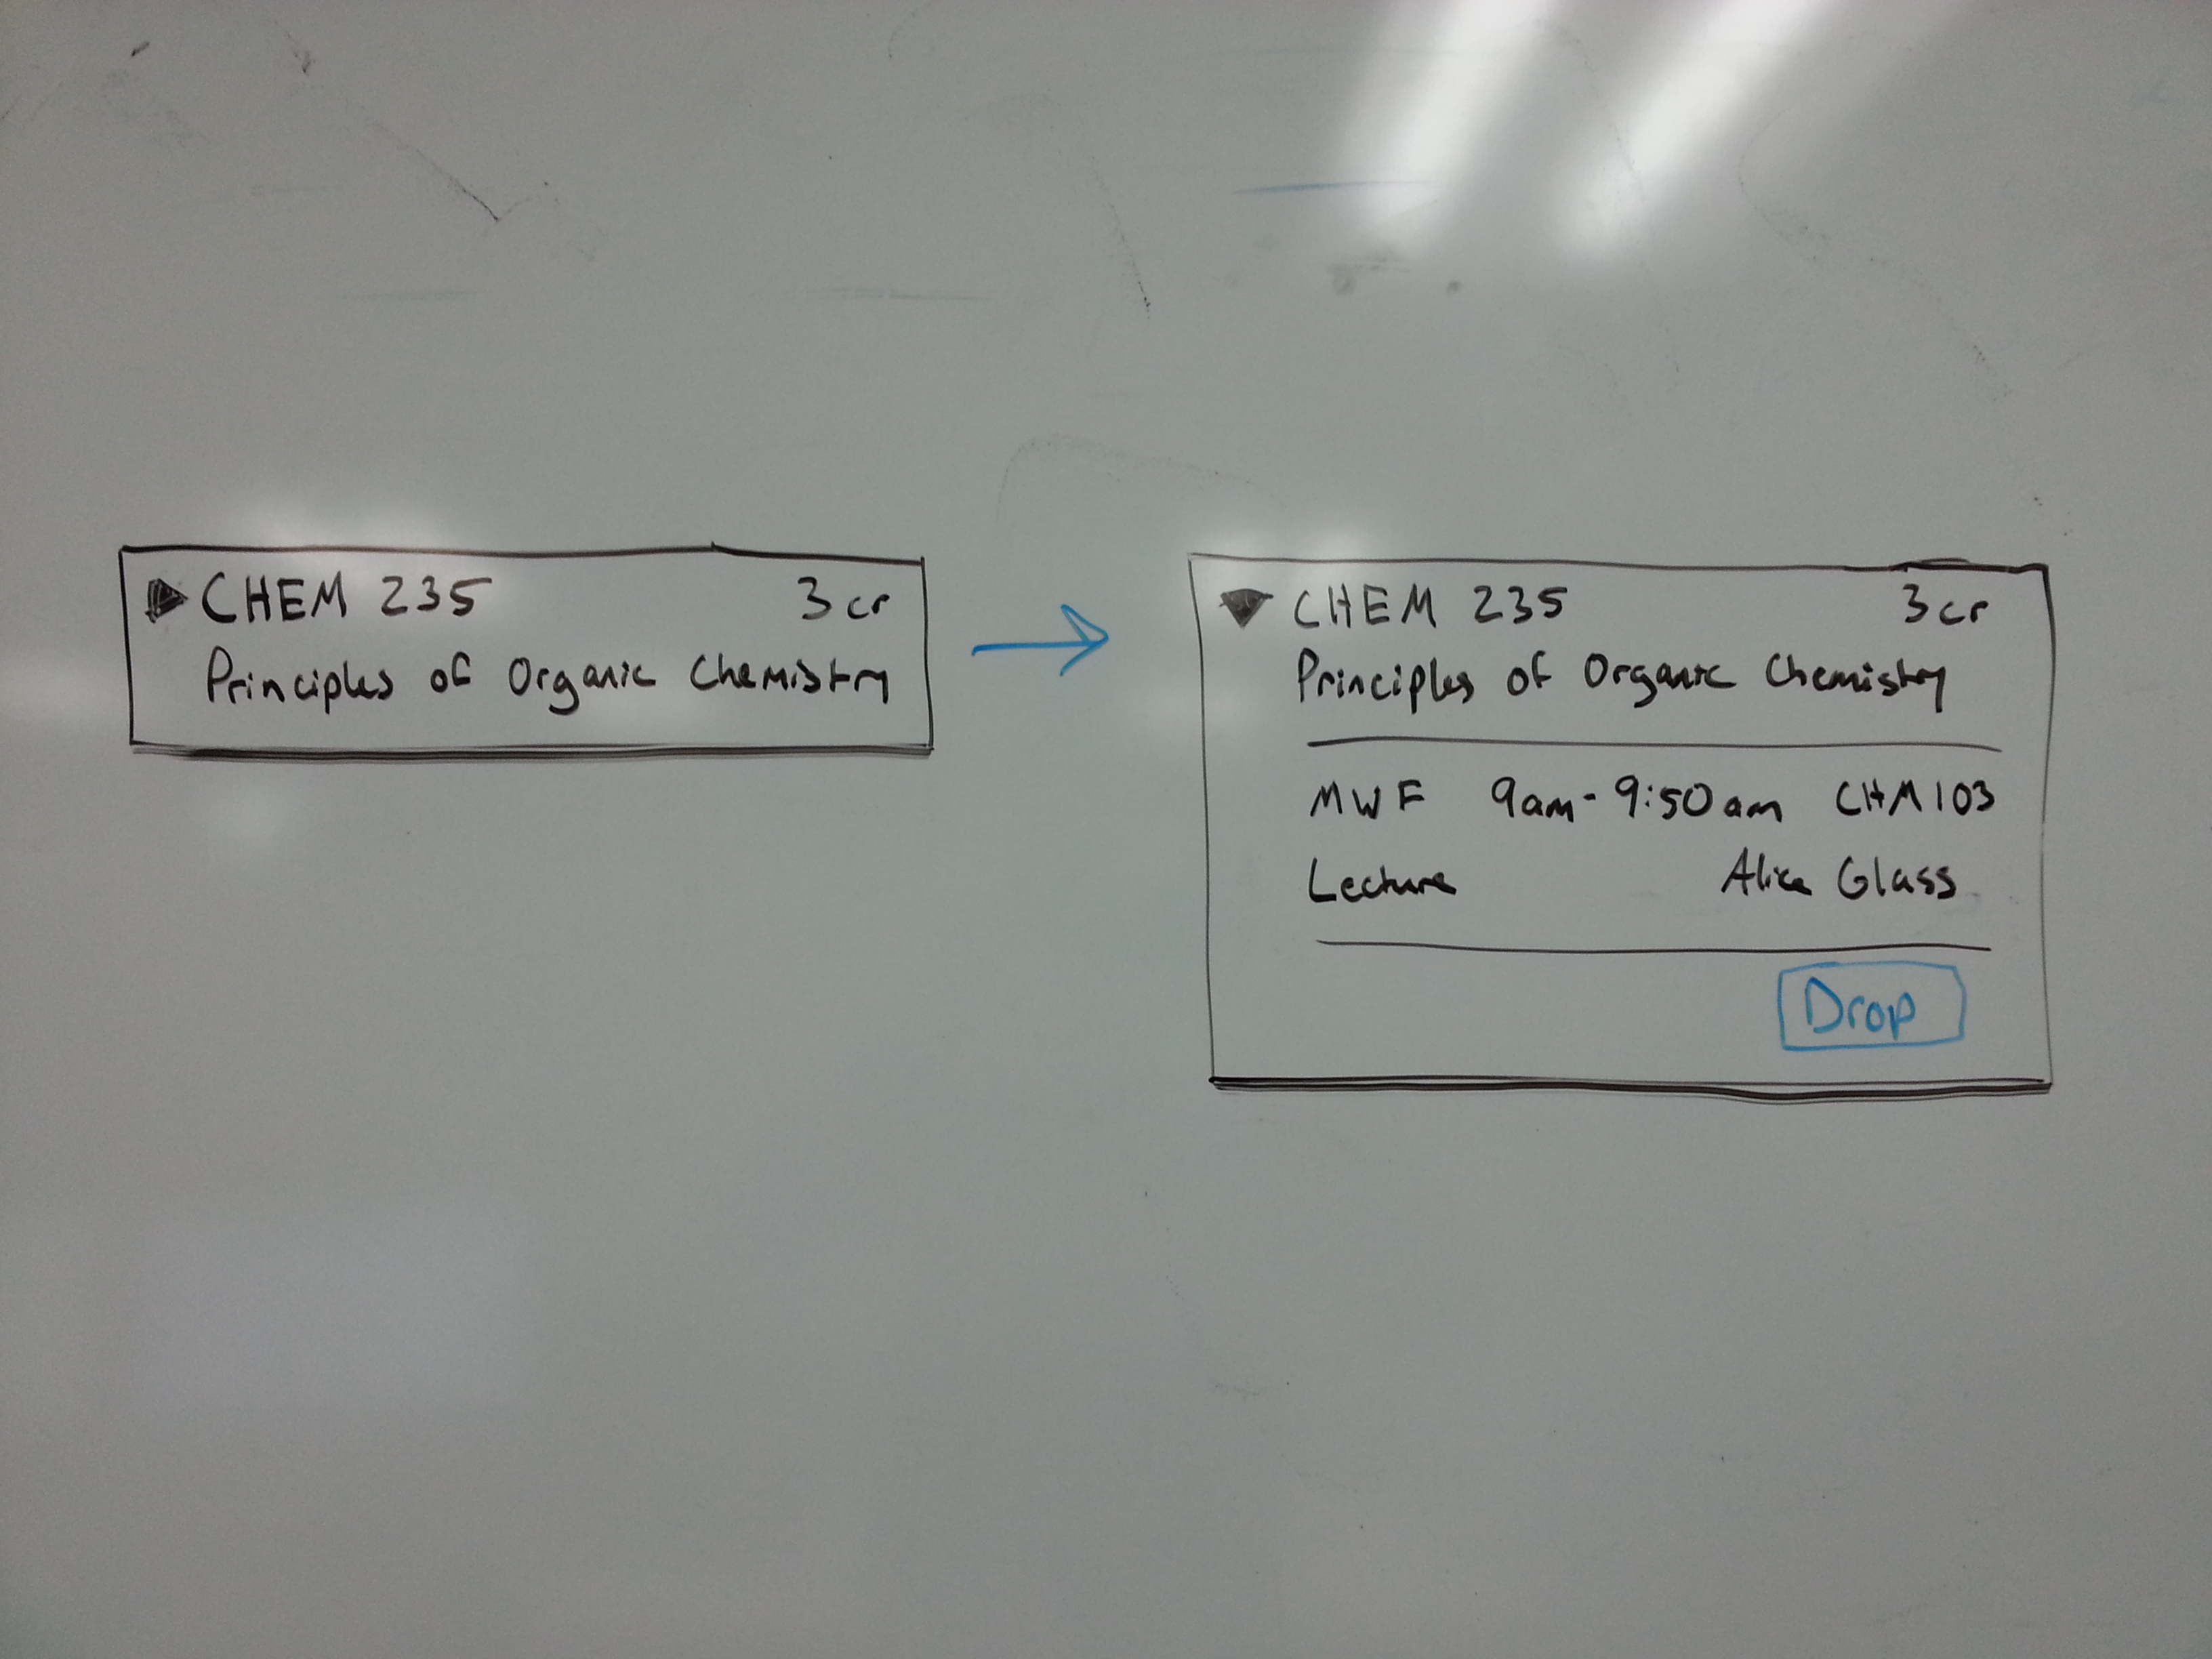 CHEM 235 3cr
Principles of Organic Chemistry
CHEM 235 3cr
Principles of Organic Chemistry
MWF 9am - 9:50am CHM103
Lecture Alice Glass
Drop